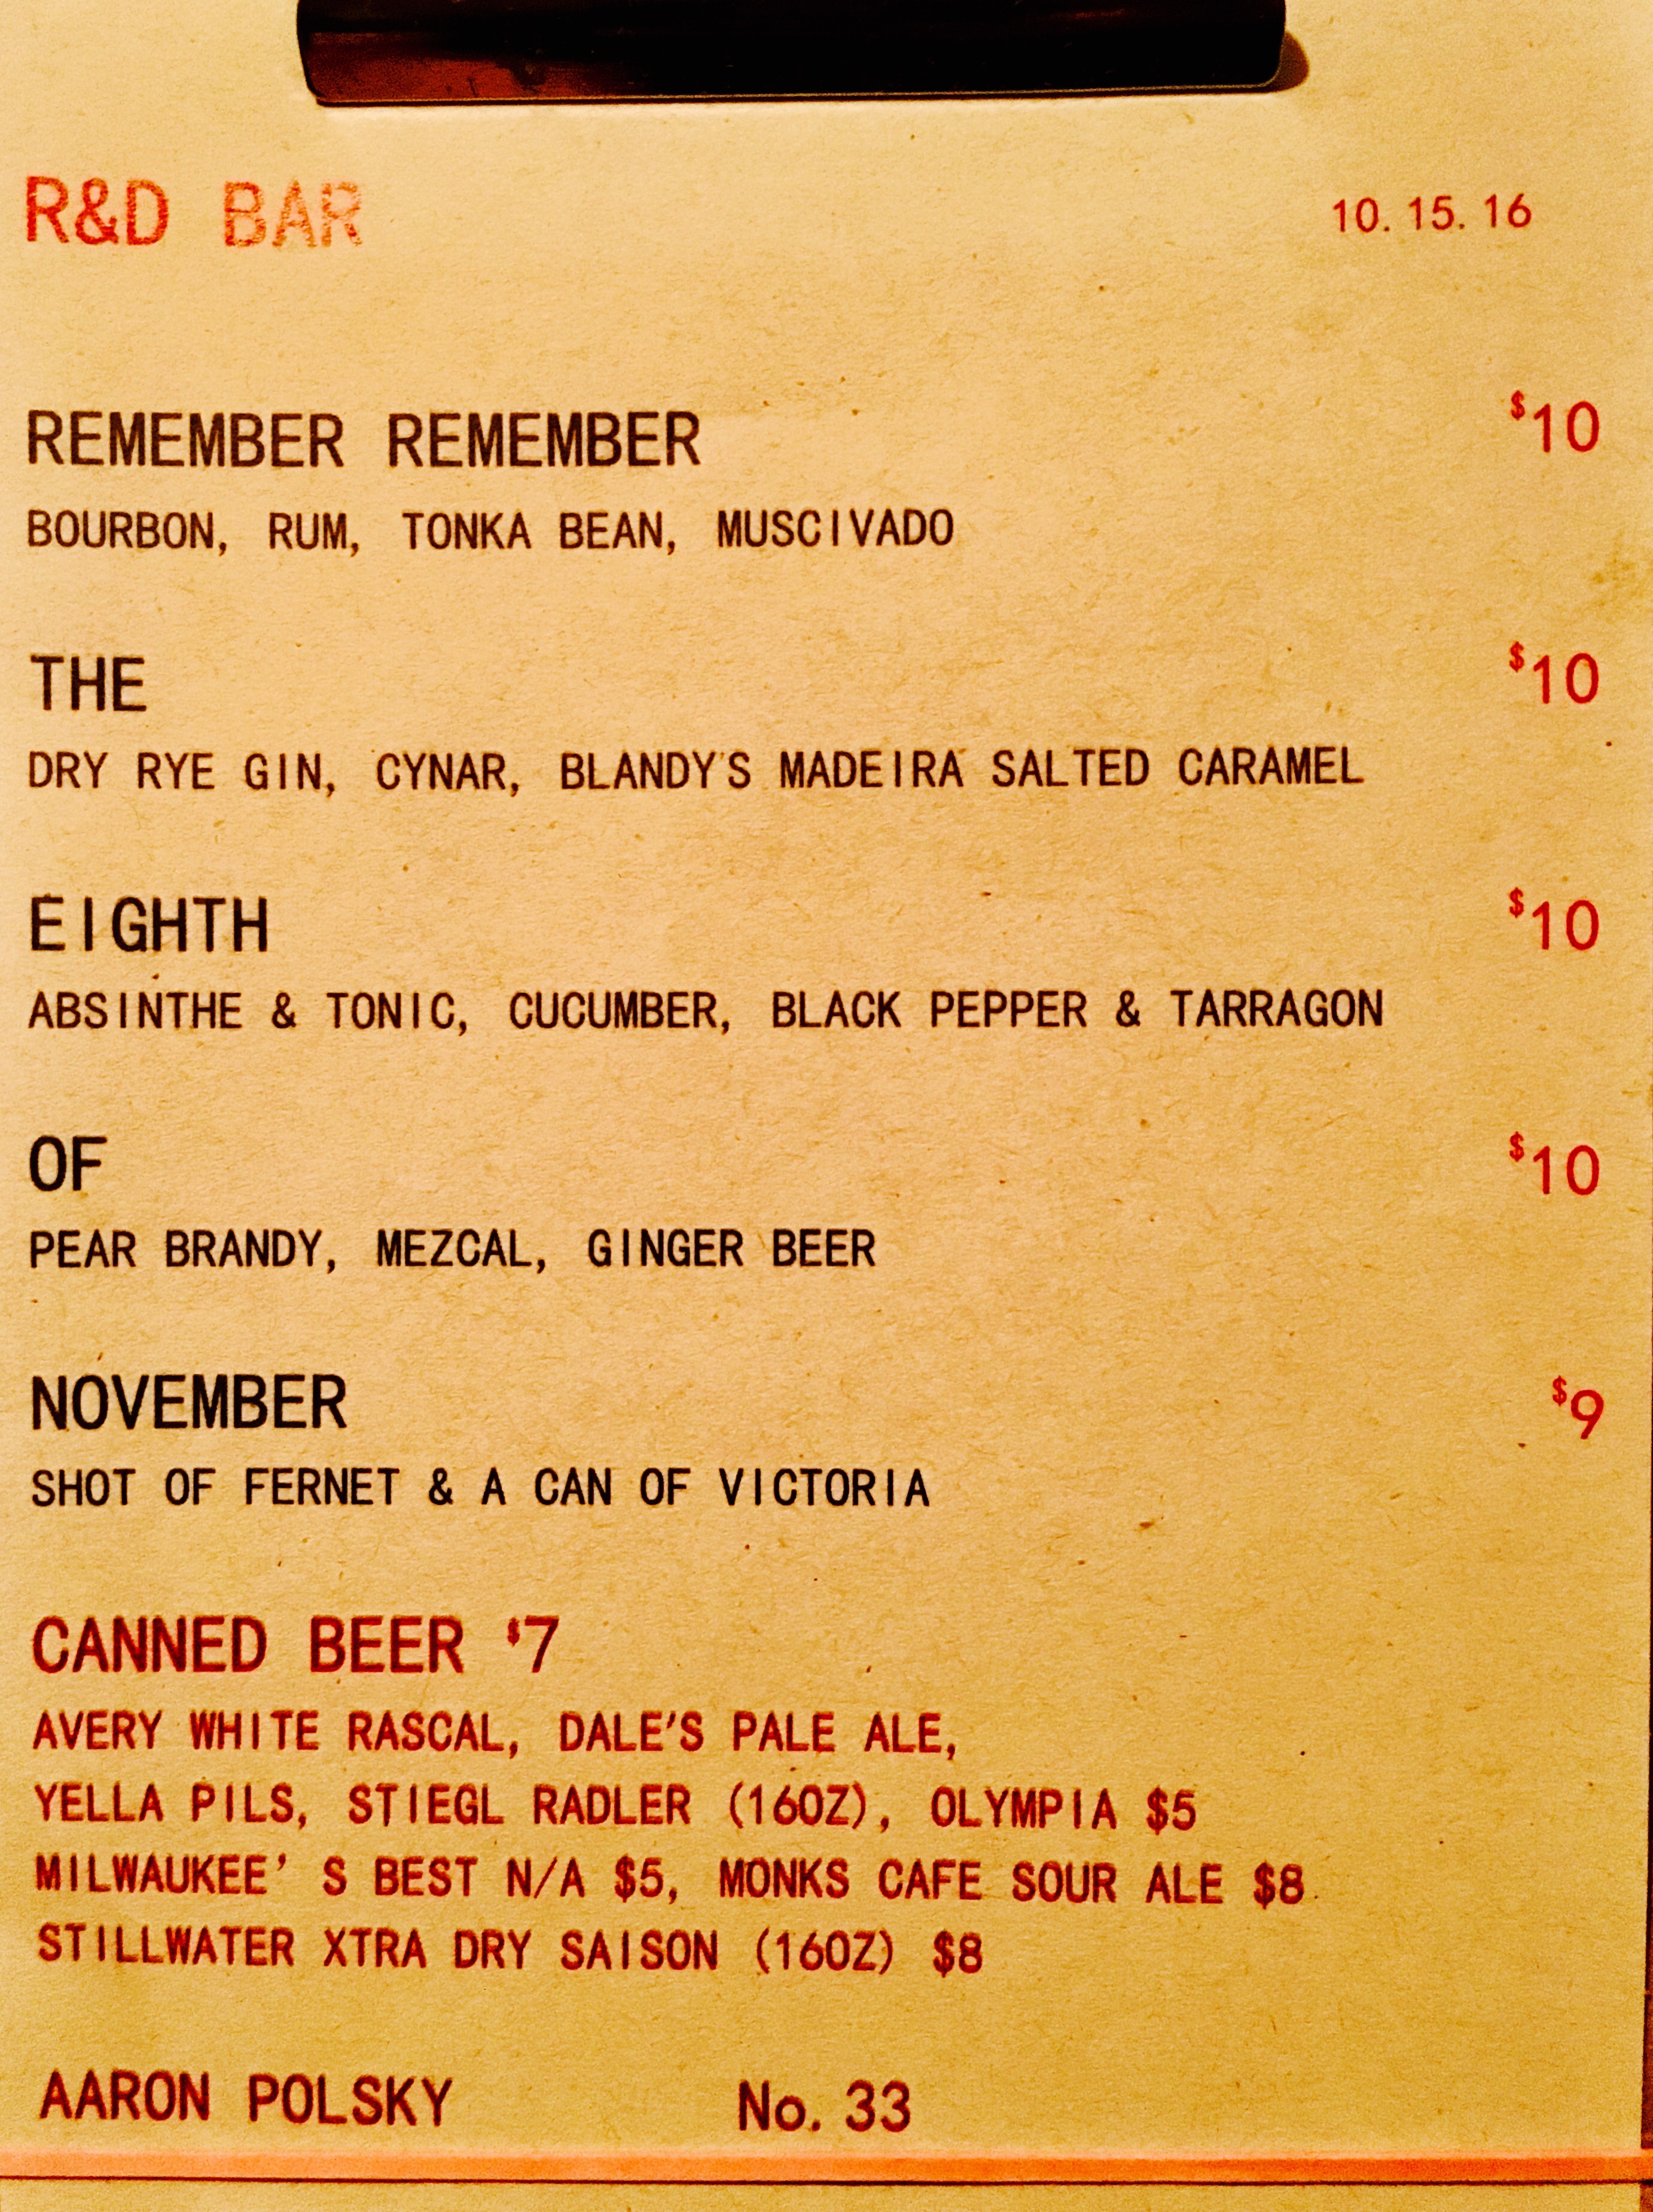 R&D BAR 10.15.16
REMEMBER REMEMBER $10
BOURBON, RUM, TONKA BEAN, MUSCIVADO
THE $10
DRY RYE GIN, CYNAR, BLANDY'S MADEIRA SALTED CARAMEL
EIGHTH $10
ABSINTHE & TONIC, CUCUMBER, BLACK PEPPER & TARRAGON
OF $10
PEAR BRANDY, MEZCAL, GINGER BEER
NOVEMBER $9
SHOT OF FERNET & A CAN OF VICTORIA
CANNED BEER $7
AVERY WHITE RASCAL, DALE'S PALE ALE,
YELLA PILS, STIEGL RADLER (16OZ), OLYMPIA $5
MILWAUKEE' S BEST N/A $5, MONKS CAFE SOUR ALE $8
STILLWATER XTRA DRY SAISON (16OZ) $8
AARON POLSKY No. 33